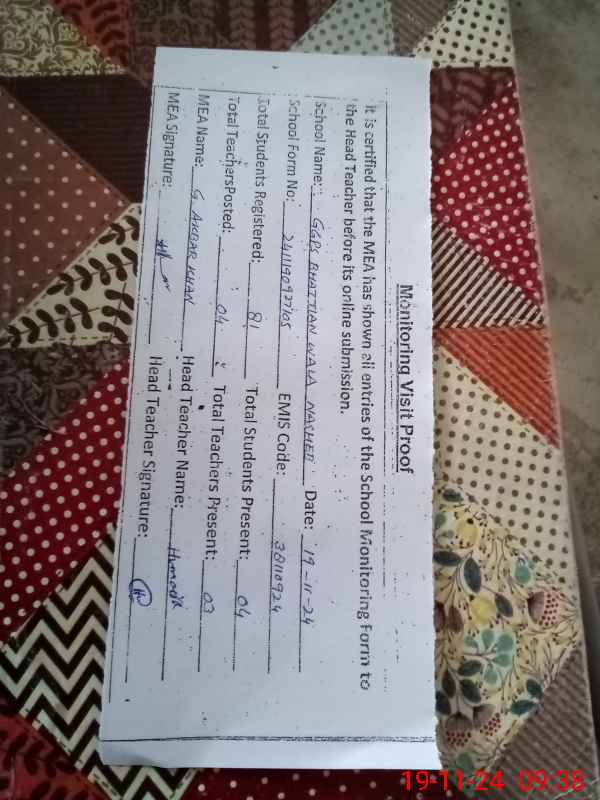 Monitoring Visit Proof
It is certified that the MEA has shown all entries of the School Monitoring Form to
the Head Teacher before its online submission.
School Name: GGPS BHATTIAN WALA NASHEB Date: 19-11-24
School Form No: 2411190927105 EMIS Code: 38110924
Total Students Registered: 81 Total Students Present: 04
Total TeachersPosted: 04 Total Teachers Present: 03
MEA Name: G AKBAR KHAN Head Teacher Name: Humaira
MEA Signature: Head Teacher Signature:
19-11-24 09:38